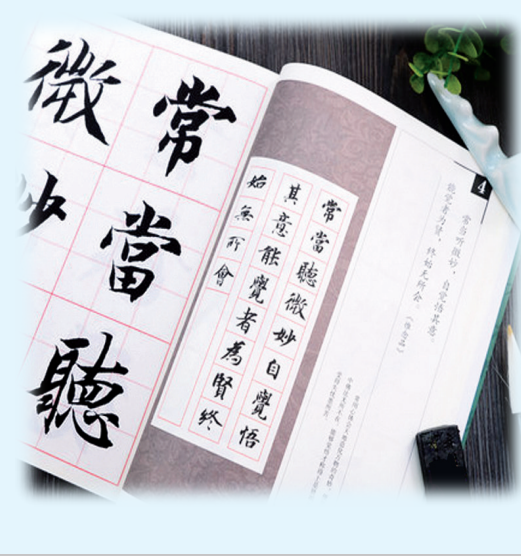 常當聽
微妙
常當聽微妙自覺悟
其意能覺者為賢終
始無所會
4
常当听微妙，自觉悟其意。
能觉者为贤，终始无所会。（惟念品）